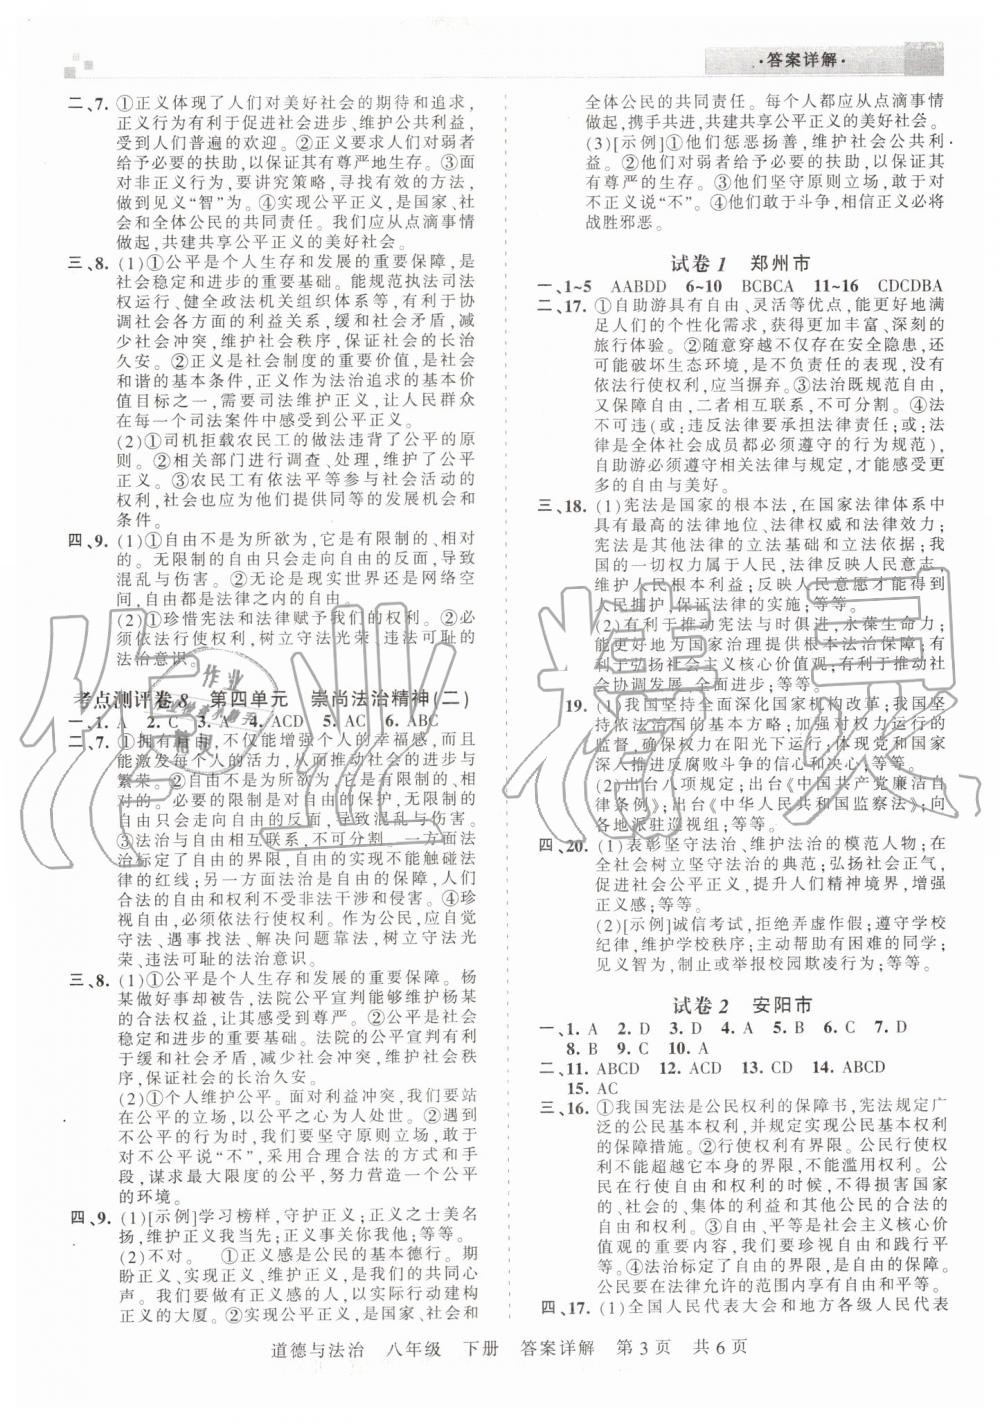 ·答案详解·
二、7. ①正义体现了人们对美好社会的期待和追求,
正义行为有利于促进社会进步、维护公共利益,
受到人们普遍的欢迎。②正义要求人们对弱者
给予必要的扶助,以保证其有尊严地生存。③面
对非正义行为,要讲究策略,寻找有效的方法,
做到见义“智”为。④实现公平正义,是国家、社
会和全体公民的共同责任。我们应从点滴事情
做起,共建共享公平正义的美好社会。
三、8. (1)①公平是个人生存和发展的重要保障,是
社会稳定和进步的重要基础。能规范执法司法
权运行、健全政法机关组织体系等,有利于协
调社会各方面的利益关系,缓和社会矛盾,减
少社会冲突,维护社会秩序,保证社会的长治
久安。②正义是社会制度的重要价值,是社会
和谐的基本条件,正义作为法治追求的基本价
值目标之一,需要司法维护正义,让人民群众
在每一个司法案件中感受到公平正义。
(2)①司机拒载农民工的做法违背了公平的原
则。②相关部门进行调查、处理,维护了公平
正义。③农民工有依法平等参与社会活动的
权利,社会也应为他们提供同等的发展机会和
条件。
四、9. (1)①自由不是为所欲为,它是有限制的、相对
的。无限制的自由只会走向自由的反面,导致
混乱与伤害。②无论是现实世界还是网络空
间,自由都是法律之内的自由。
(2)①珍惜宪法和法律赋予我们的自由。②必
须依法行使权利,树立守法光荣、违法可耻的
法治意识。
考点测评卷8 第四单元 崇尚法治精神(二)
一、1. A 2. C 3. A 4. ACD 5. AC 6. ABC
二、7. ①拥有自由,不仅能增强个人的幸福感,而且
能激发每个人的活力,从而推动社会的进步与
繁荣。②自由不是为所欲为,它是有限制的、相
对的。必要的限制是对自由的保护,无限制的
自由只会走向自由的反面,导致混乱与伤害。
③法治与自由相互联系,不可分割。一方面法
治标定了自由的界限,自由的实现不能触碰法
律的红线;另一方面,法治是自由的保障,人们
合法的自由和权利不受非法干涉和侵害。④珍
视自由,必须依法行使权利。作为公民,应自觉
守法、遇事找法、解决问题靠法,树立守法光
荣、违法可耻的法治意识。
三、8. (1)①公平是个人生存和发展的重要保障。杨
某做好事却被告,法院公平宣判能够维护杨某
的合法权益,让他感受到尊严。②公平是社会
稳定和进步的重要基础。法院的公平宣判有利
于缓和社会矛盾,减少社会冲突,维护社会秩
序,保证社会的长治久安。
(2)①个人维护公平。面对利益冲突,我们要站
在公平的立场,以公平之心为人处世。②遇到
不公平的行为时,我们要坚守原则立场,敢于
对不公平说“不”,采用合理合法的方式和手
段,谋求最大限度的公平,努力营造一个公平
的环境。
四、9. (1)[示例]学习榜样,守护正义;正义之士美名
扬,维护正义我当先;正义事关你我他;等等。
(2)不对。 ①正义感是公民的基本德行。期
盼正义、实现正义、维护正义,是我们的共同心
声。我们要做有正义感的人,以实际行动建构
正义的大厦。②实现公平正义,是国家、社会和
全体公民的共同责任。每个人都应从点滴事情
做起,携手共进,共建共享公平正义的美好社会。
(3)[示例]①他们惩恶扬善,维护社会公共利
益。②他们对弱者给予必要的扶助,保证其有
有尊严的生存。③他们坚守原则立场,敢于对
不正义说“不”。④他们敢于斗争,相信正义必将
战胜邪恶。
试卷1 郑州市
一、1~5 AABDD 6~10 BCBCA 11~16 CDCDBA
二、17. ①自助游具有自由、灵活等优点,能更好地满
足人们的个性化需求,获得更加丰富、深刻的
旅行体验。②随意穿越不仅存在安全隐患,还
可能破坏生态环境,是不负责任的表现,没有
依法行使权利,应当摒弃。③法治既规范自由,
又保障自由,二者相互联系,不可分割。④法
不可违(或:违反法律要承担法律责任;或:法
律是全体社会成员都必须遵守的行为规范),
自助游必须遵守相关法律与规定,才能感受更多
的自由与美好。
三、18. (1)宪法是国家的根本法,在国家法律体系中
具有最高的法律地位、法律权威和法律效力;
宪法是其他法律的立法基础和立法依据;我
国的一切权力属于人民,法律反映人民意志,
维护人民根本利益;反映人民意愿才能得到
人民拥护,保证法律的实施;等等。
(2)有利于推动宪法与时俱进,永葆生命力;
有利于为国家治理提供根本法治保障;有利
于弘扬社会主义核心价值观;有利于推动社会
全面进步;等等。
19. (1)我国坚持全面深化国家机构改革;我国坚
持依法治国的基本方略;加强对权力运行的
监督,确保权力在阳光下运行;体现党和国家
深入推进反腐败斗争的信心和决心;等等。
(2)出台八项规定;出台《中国共产党廉洁自
律条例》;出台《中华人民共和国监察法》;向
各地派驻巡视组;等等。
四、20. (1)表彰坚守法治、维护法治的模范人物;在
全社会树立坚守法治的典范;弘扬社会正气,
促进社会公平正义,提升人们精神境界,增强
正义感;等等。
(2)[示例]诚信考试,拒绝弄虚作假;遵守学校
纪律,维护学校秩序;主动帮助有困难的同学;
见义智为,制止或举报校园欺凌行为;等等。
试卷2 安阳市
一、1. A 2. D 3. D 4. A 5. A 6. C 7. D
8. B 9. C 10. A
二、11. ABCD 12. ACD 13. CD 14. ABCD
15. AC
三、16. ①我国宪法是公民权利的保障书,宪法规定广
泛的公民基本权利,并规定实现公民基本权利
的保障措施。②行使权利有界限。公民行使权
利不能超越它本身的界限,不能滥用权利。公民
在行使自由和权利的时候,不得损害国家
的、社会的、集体的利益和其他公民的合法的
自由和权利。③自由、平等是社会主义核心价
值观的重要内容,我们要珍视自由和践行平
等。④法治标定了自由的界限,自由是法治的保障,
公民要在法律允许的范围内享有自由和平等。
四、17. (1)全国人民代表大会和地方各级人民代表
道德与法治 八年级 下册 答案详解 第3页 共6页
作业精灵